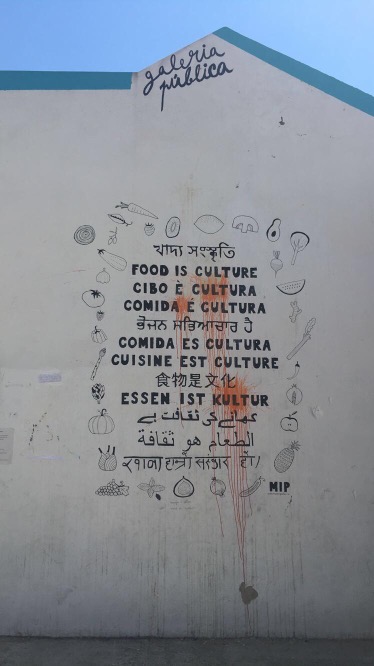 galeria
pública
খাদ্য সংস্কৃতি
FOOD IS CULTURE
CIBO È CULTURA
COMIDA É CULTURA
ਭੋਜਨ ਸਭਿਆਚਾਰ ਹੈ
COMIDA ES CULTURA
CUISINE EST CULTURE
食物是文化
ESSEN IST KULTUR
کھانے کی ثقافت ہے
الطعام هو ثقافة
MIP